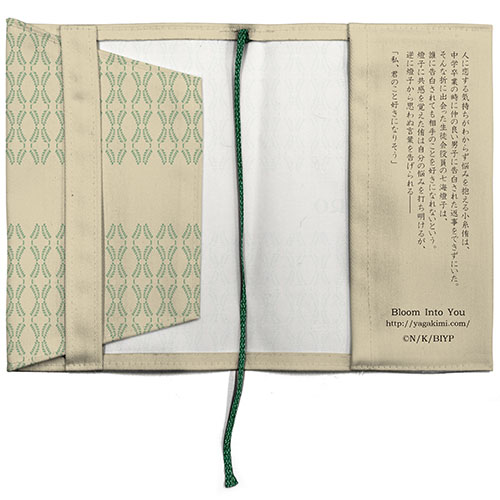 人に恋する気持ちがわからず悩みを抱える小糸侑は、
中学卒業の時に仲の良い男子に告白された返事をできずにいた。
そんな折に出会った生徒会役員の七海燈子は、
誰に告白されても相手のことを好きになれないという。
燈子に共感を覚えた侑は自分の悩みを打ち明けるが、
逆に燈子から思わぬ言葉を告げられる──
「私、君のこと好きになりそう」
Bloom Into You
http://yagakimi.com/
©N/K/BIYP